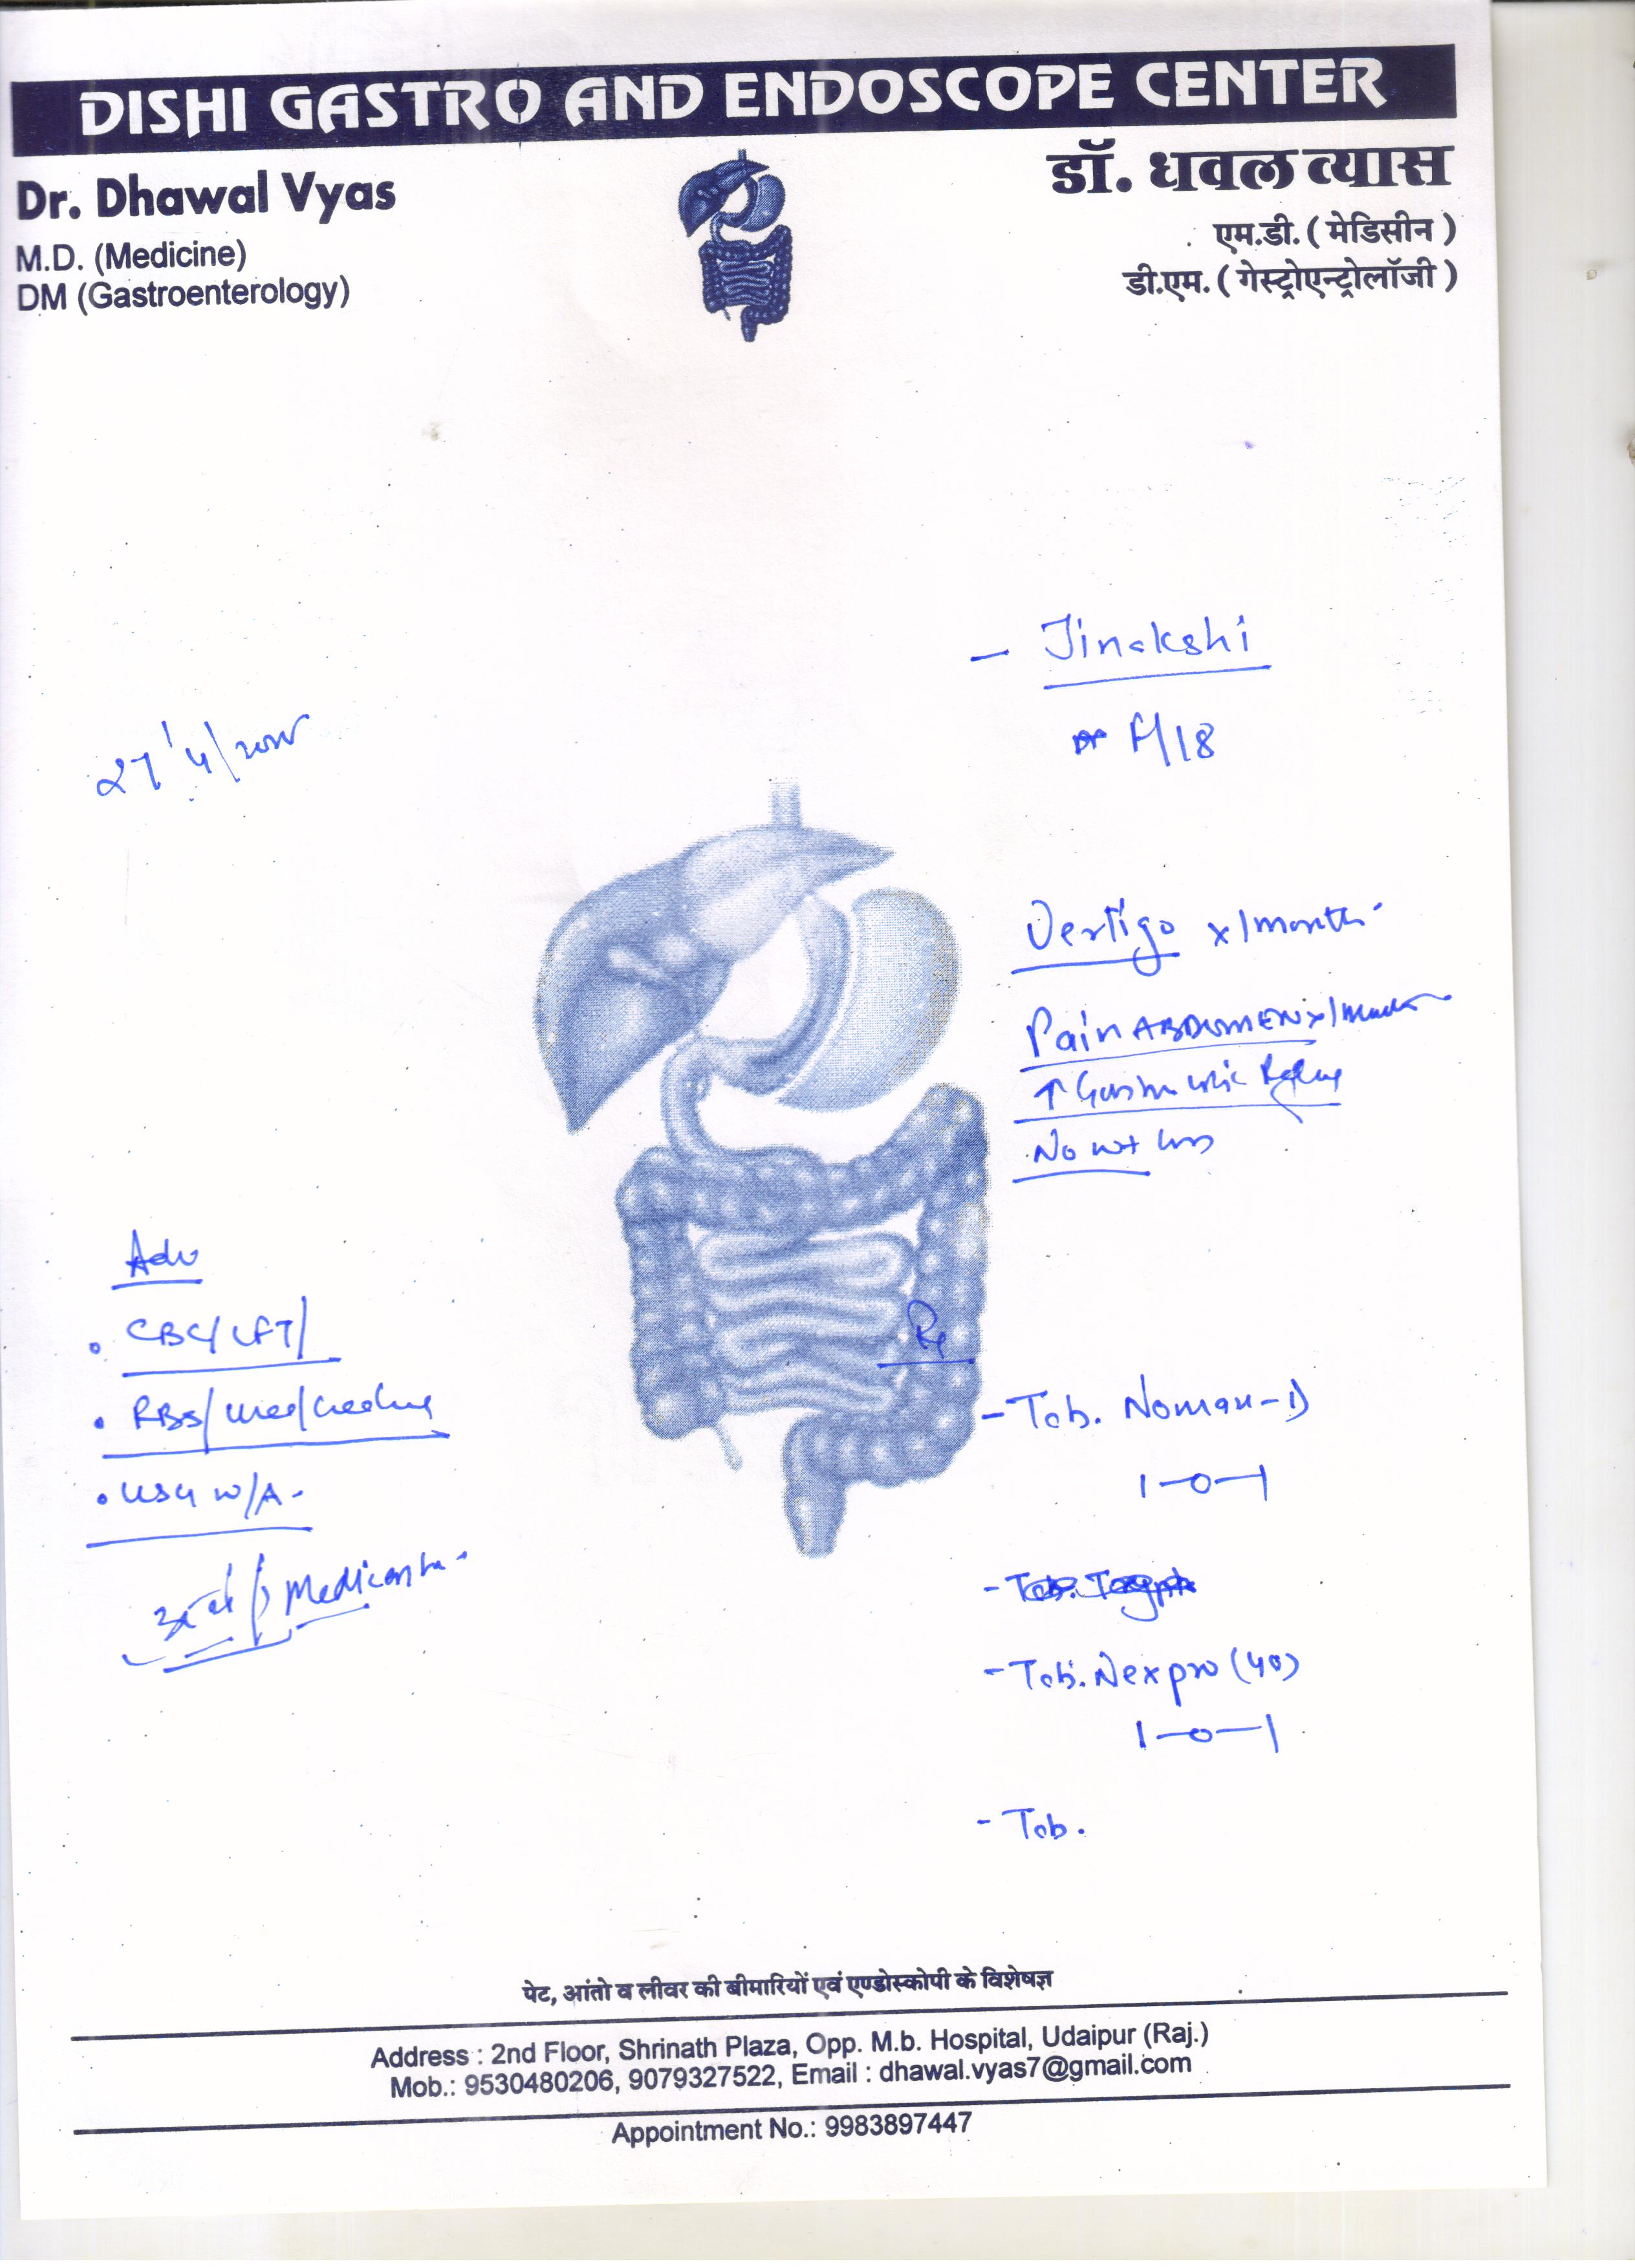 DISHI GASTRO AND ENDOSCOPE CENTER
Dr. Dhawal Vyas
M.D. (Medicine)
DM (Gastroenterology)
डॉ. धवल व्यास
एम.डी. ( मेडिसीन )
डी.एम. ( गेस्ट्रोएन्ट्रोलॉजी )
- Jinakshi
F/18
27/4/
Vertigo x 1 month
Pain ABDOMEN x 1
↑ Gastro colic Reflex
No wt loss
Adv
• CBC/LFT/
• RBS/urea/
• USG W/A
Rx
- Tab. Noman-D
1-0-1
- Tab. Nexpro (40)
1-0-1
- Tab.
पेट, आंतो व लीवर की बीमारियों एवं एण्डोस्कोपी के विशेषज्ञ
Address : 2nd Floor, Shrinath Plaza, Opp. M.b. Hospital, Udaipur (Raj.)
Mob.: 9530480206, 9079327522, Email : dhawal.vyas7@gmail.com
Appointment No.: 9983897447